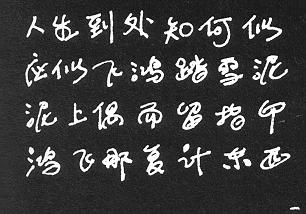 人生到处知何似
应似飞鸿踏雪泥
泥上偶而留指爪
鸿飞那复计东西